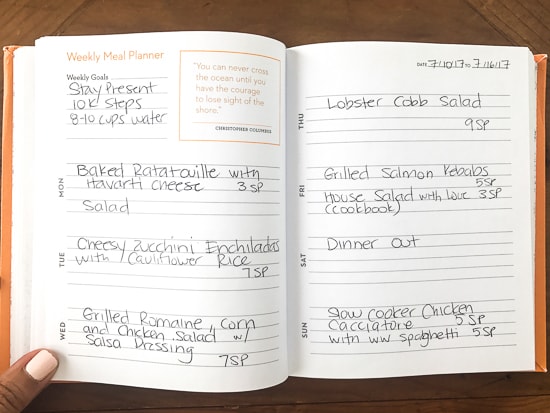 Weekly Meal Planner
Weekly Goals
Stay Present
10K! Steps
8-10 cups water
"You can never cross
the ocean until you
have the courage
to lose sight of the
shore."
CHRISTOPHER COLUMBUS
MON
Baked Ratatouille with
Havarti cheese 3 SP
Salad
TUE
Cheesy Zucchini Enchiladas
with Cauliflower Rice
7 SP
WED
Grilled Romaine, Corn
and Chicken Salad w/
Salsa Dressing
7 SP
DATE 7/10/17 TO 7/16/17
THU
Lobster Cobb Salad
9 SP
FRI
Grilled Salmon Kebabs
5 SP
House Salad with Love 3 SP
(cookbook)
SAT
Dinner Out
SUN
Slow Cooker Chicken
Cacciatore 5 SP
with ww spaghetti 5 SP